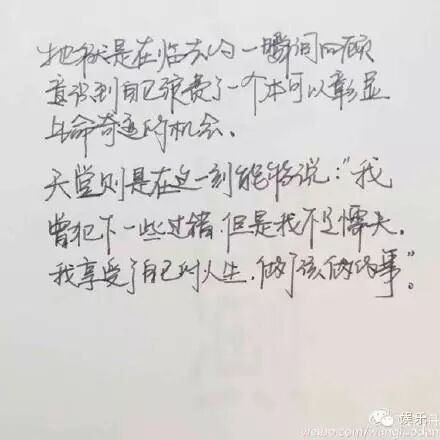 地狱是在临去的一瞬间回顾
意识到自己浪费了一个本可以彰显
生命奇迹的机会、
天堂则是在这一刻能够说:“我
曾犯下一些过错,但是我不是懦夫,
我享受了自己的人生,做了该做的事”。
娱乐
weibo.com/